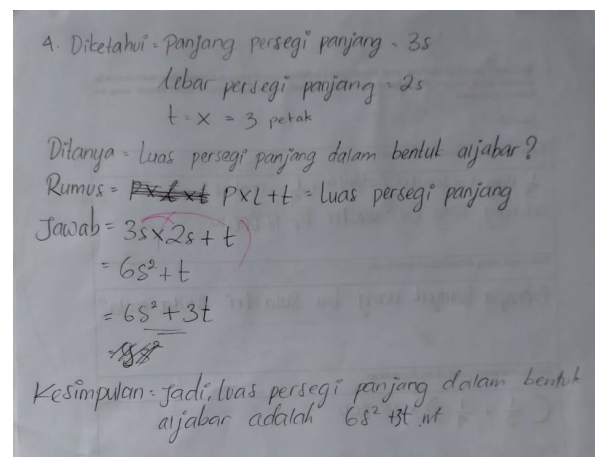 4. Diketahui = Panjang persegi panjang = 3s
lebar persegi panjang = 2s
t = x = 3 petak
Ditanya = Luas persegi panjang dalam bentuk aljabar?
Rumus = P x l x t P x L + t = Luas persegi panjang
Jawab = 3s x 2s + t
= 6s² + t
= 6s² + 3t
Kesimpulan = Jadi, luas persegi panjang dalam bentuk
aljabar adalah 6s² + 3t